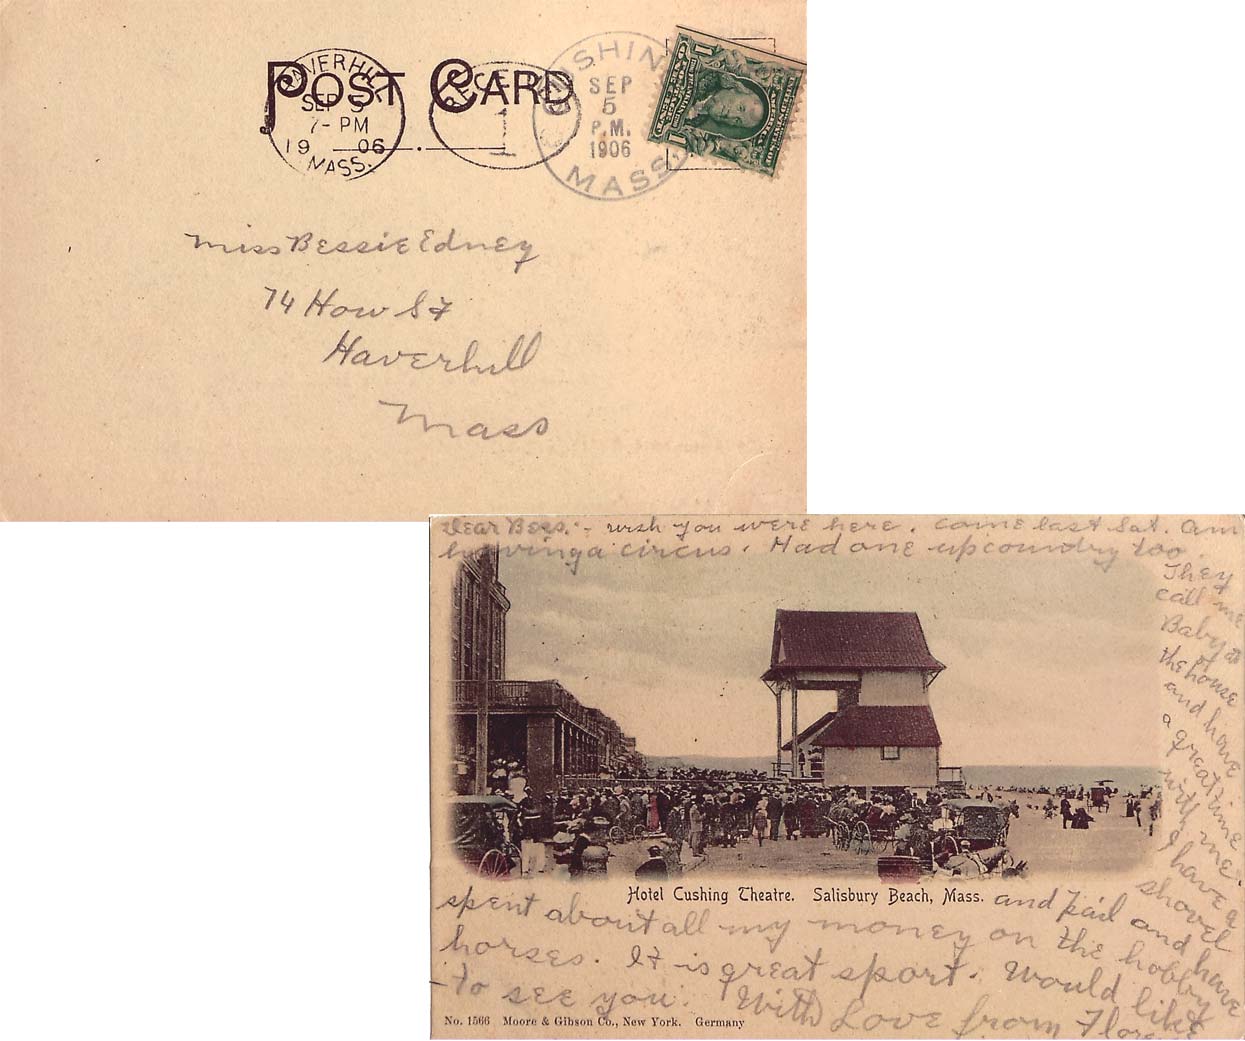 POST CARD
HAVERHILL
SEP 5
7- PM
19 06
MASS.
RECEIVED
1
CUSHING
SEP
5
P.M.
1906
MASS.
1
1
Miss Bessie Edney
74 How St
Haverhill
Mass
Dear Bess:- wish you were here. Come last Sat. Am
having a circus. Had one up country too.
They
call me
Baby
at
the house
and have
a great time
with me.
I have a
shovel
and pail and have
Hotel Cushing Theatre. Salisbury Beach, Mass.
spent about all my money on the hobby
horses. It is great sport. Would like
to see you. With Love from
No. 1566 Moore & Gibson Co., New York. Germany